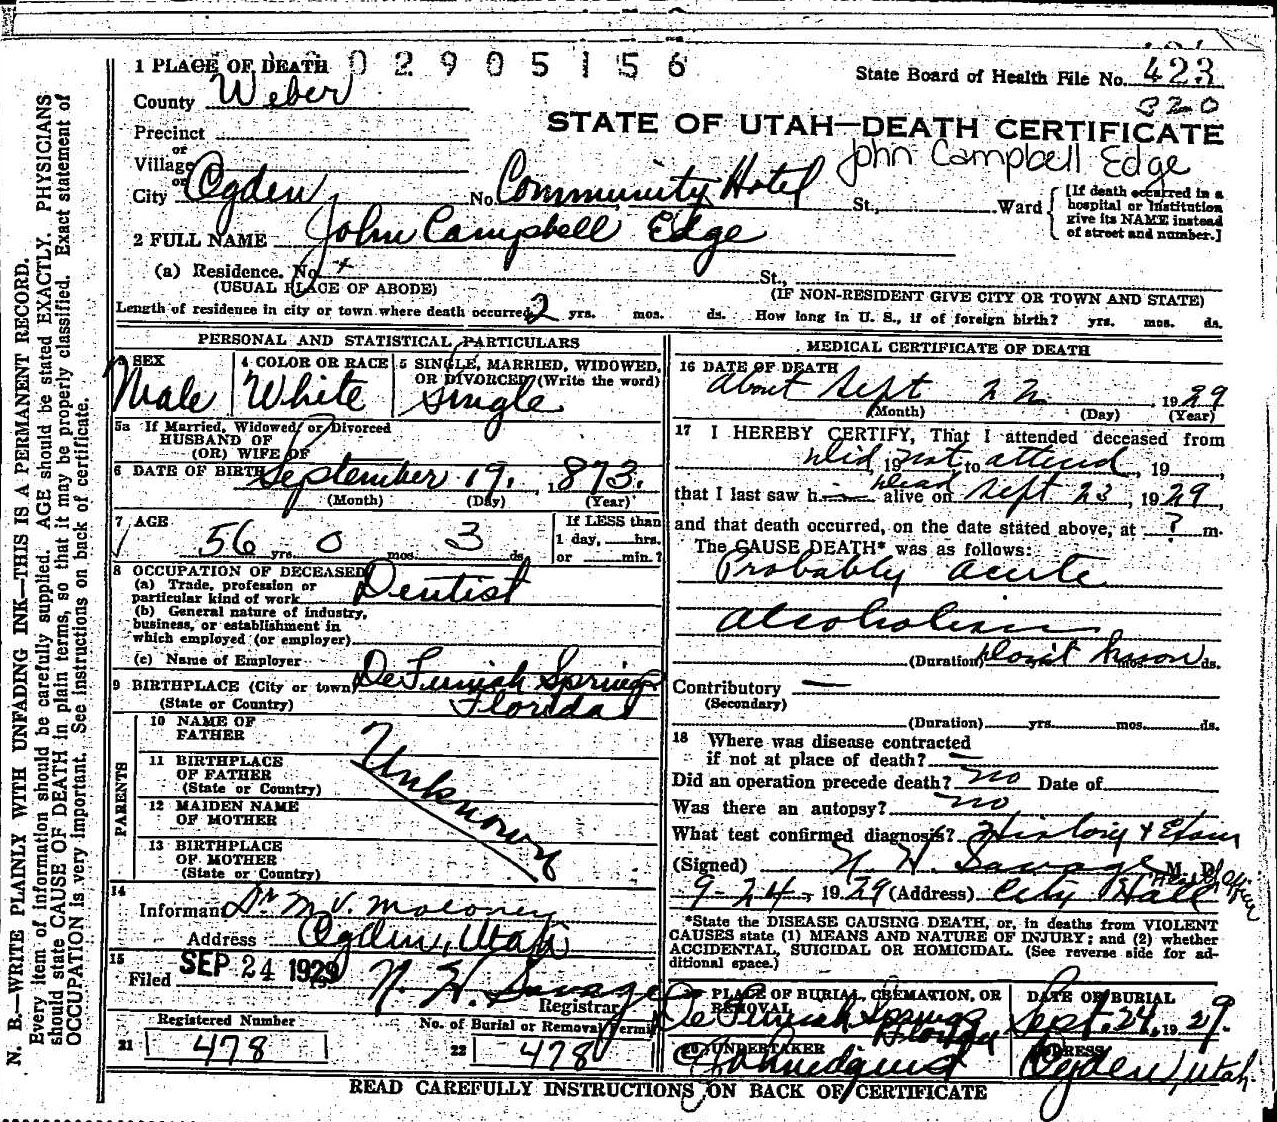 N. B.—WRITE PLAINLY WITH UNFADING INK—THIS IS A PERMANENT RECORD.
Every item of information should be carefully supplied. AGE should be stated EXACTLY. PHYSICIANS
should state CAUSE OF DEATH in plain terms, so that it may be properly classified. Exact statement of
OCCUPATION is very important. See instructions on back of certificate.
1 PLACE OF DEATH 0 2 9 0 5 1 5 6
State Board of Health File No. 423
320
County Weber
Precinct
or
Village
or
City Ogden No. Community Hotel St., Ward
STATE OF UTAH—DEATH CERTIFICATE
John Campbell Edge
[If death occurred in a
hospital or institution
give its NAME instead
of street and number.]
2 FULL NAME John Campbell Edge
(a) Residence. No. St.,
(USUAL PLACE OF ABODE) (IF NON-RESIDENT GIVE CITY OR TOWN AND STATE)
Length of residence in city or town where death occurred 2 yrs. mos. ds. How long in U. S., if of foreign birth? yrs. mos. ds.
PERSONAL AND STATISTICAL PARTICULARS
3 SEX
Male
4 COLOR OR RACE
White
5 SINGLE, MARRIED, WIDOWED,
OR DIVORCED (Write the word)
Single
5a If Married, Widowed or Divorced
HUSBAND OF
(OR) WIFE OF
6 DATE OF BIRTH September 19, 1873.
(Month) (Day) (Year)
7 AGE
56 yrs. 0 mos. 3 ds.
If LESS than
1 day, hrs.
or min.?
8 OCCUPATION OF DECEASED
(a) Trade, profession or
particular kind of work Dentist
(b) General nature of industry,
business, or establishment in
which employed (or employer)
(c) Name of Employer
9 BIRTHPLACE (City or town) De Funiak Springs
(State or Country) Florida
PARENTS
10 NAME OF
FATHER
11 BIRTHPLACE
OF FATHER
(State or Country)
12 MAIDEN NAME
OF MOTHER
13 BIRTHPLACE
OF MOTHER
(State or Country)
Unknown
14
Informant Dr M. V. Moloney
Address Ogden, Utah
15
Filed SEP 24 1929 N. H. Savage
Registrar
Registered Number
21 478
No. of Burial or Removal Permit
22 478
MEDICAL CERTIFICATE OF DEATH
16 DATE OF DEATH
About Sept 22 1929
(Month) (Day) (Year)
17 I HEREBY CERTIFY, That I attended deceased from
Did, 19 not, to attend, 19
that I last saw h dead alive on Sept 23, 1929,
and that death occurred, on the date stated above, at ? m.
The CAUSE DEATH* was as follows:
Probably acute
alcoholism
(Duration) Don't know ds.
Contributory —
(Secondary)
(Duration) yrs. mos. ds.
18 Where was disease contracted
if not at place of death? —
Did an operation precede death? no Date of
Was there an autopsy? no
What test confirmed diagnosis? History & Exam
(Signed) N H Savage M. D.
Health Officer
9-24-, 1929 (Address) City Hall
*State the DISEASE CAUSING DEATH, or, in deaths from VIOLENT
CAUSES state (1) MEANS AND NATURE OF INJURY; and (2) whether
ACCIDENTAL, SUICIDAL OR HOMICIDAL. (See reverse side for ad-
ditional space.)
PLACE OF BURIAL, CREMATION, OR
REMOVAL
De Funiak Springs
Florida
DATE OF BURIAL
Sept. 24, 1929.
20 UNDERTAKER
ADDRESS
Ogden, Utah.
READ CAREFULLY INSTRUCTIONS ON BACK OF CERTIFICATE